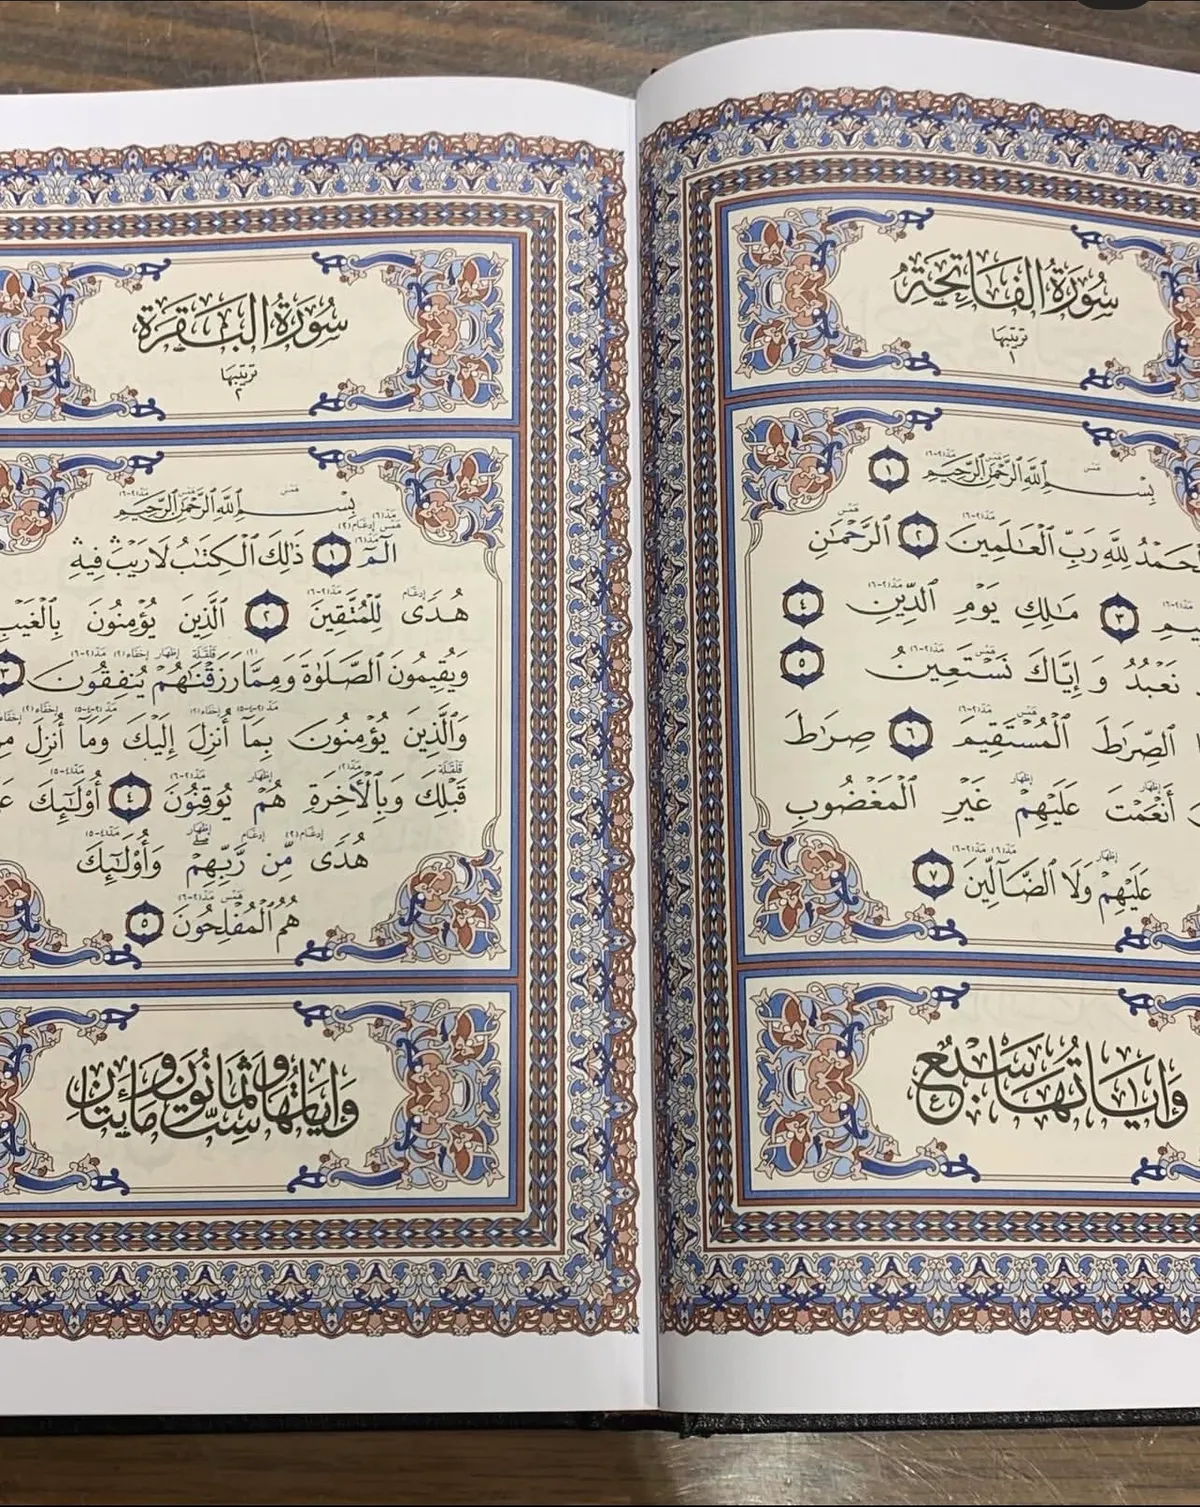 سُورَةُ الفَاتِحَةِ
ترتيبها
١
بِسْمِ ٱللَّهِ ٱلرَّحْمَٰنِ ٱلرَّحِيمِ ١
لِلَّهِ رَبِّ ٱلْعَٰلَمِينَ ٢ ٱلرَّحْمَٰنِ
٣ مَٰلِكِ يَوْمِ ٱلدِّينِ ٤
نَعْبُدُ وَإِيَّاكَ نَسْتَعِينُ ٥
ٱلصِّرَٰطَ ٱلْمُسْتَقِيمَ ٦ صِرَٰطَ
أَنْعَمْتَ عَلَيْهِمْ غَيْرِ ٱلْمَغْضُوبِ
عَلَيْهِمْ وَلَا ٱلضَّآلِّينَ ٧
وَآيَاتُهَا سَبْعٌ
سُورَةُ البَقَرَةِ
ترتيبها
٢
بِسْمِ ٱللَّهِ ٱلرَّحْمَٰنِ ٱلرَّحِيمِ
الٓمٓ ١ ذَٰلِكَ ٱلْكِتَٰبُ لَا رَيْبَ فِيهِ
هُدًى لِّلْمُتَّقِينَ ٢ ٱلَّذِينَ يُؤْمِنُونَ بِٱلْغَيْبِ
وَيُقِيمُونَ ٱلصَّلَوٰةَ وَمِمَّا رَزَقْنَٰهُمْ يُنفِقُونَ ٣
وَٱلَّذِينَ يُؤْمِنُونَ بِمَآ أُنزِلَ إِلَيْكَ وَمَآ أُنزِلَ
قَبْلِكَ وَبِٱلْآخِرَةِ هُمْ يُوقِنُونَ ٤ أُوْلَٰٓئِكَ
هُدًى مِّن رَّبِّهِمْ وَأُوْلَٰٓئِكَ
هُمُ ٱلْمُفْلِحُونَ ٥
وَآيَاتُهَا سِتٌّ وَثَمَانُونَ وَمِائَتَانِ